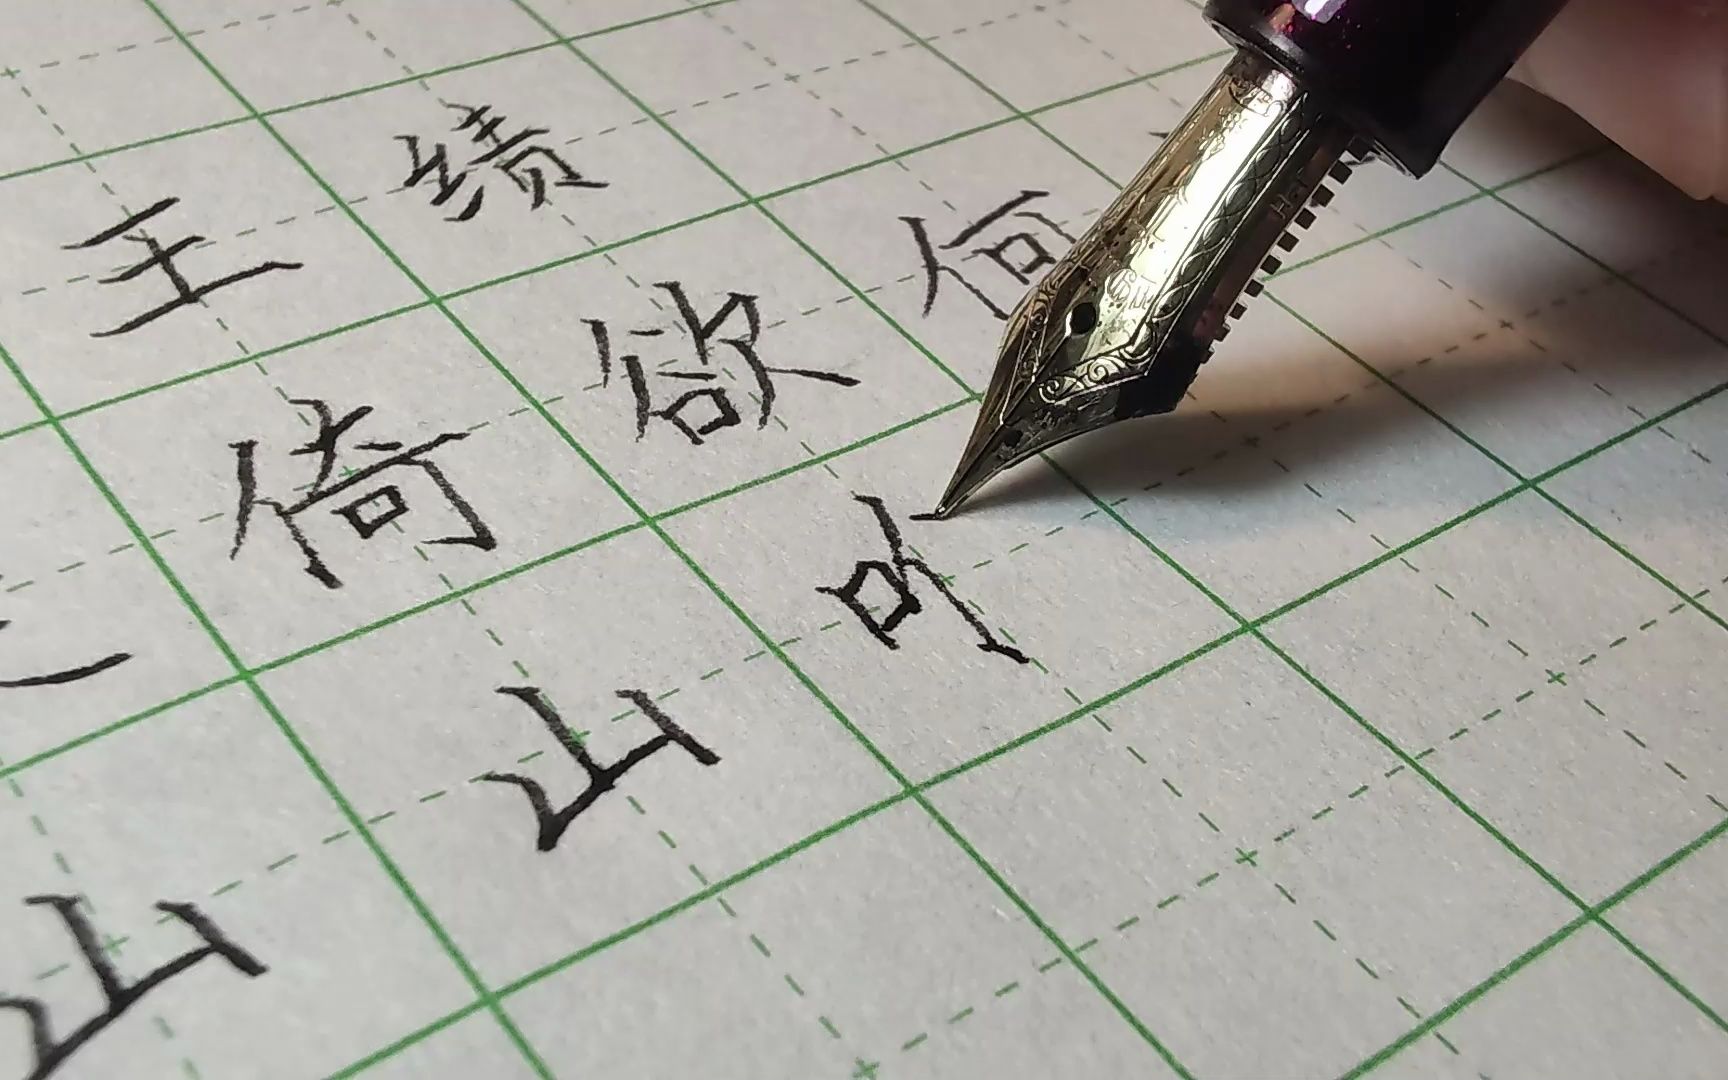 王绩
倚欲何
山山